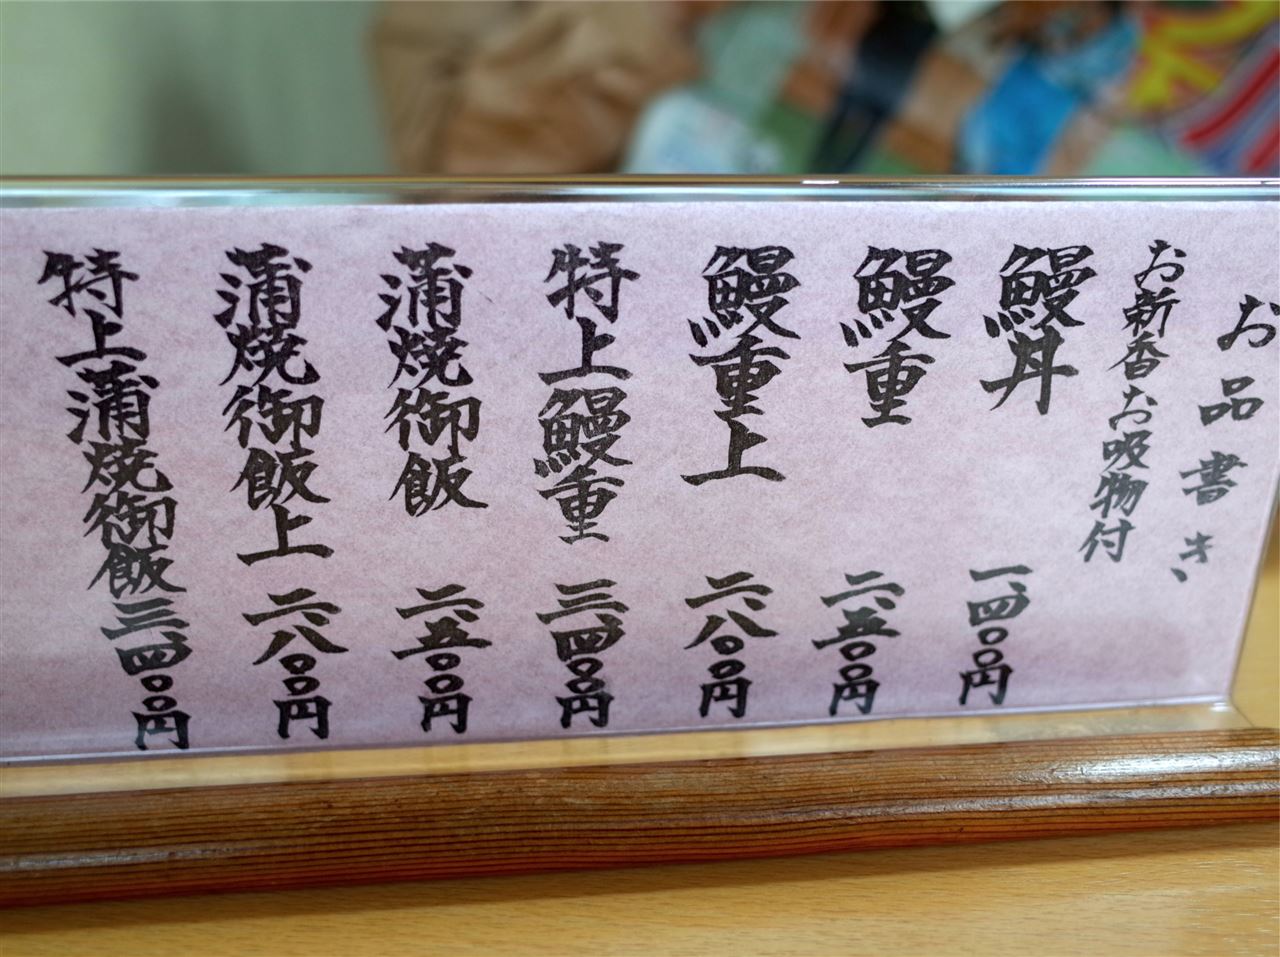 お品書き
お新香お吸物付
鰻丼 一、四〇〇円
鰻重 二、五〇〇円
鰻重上 二、八〇〇円
特上鰻重 三、四〇〇円
蒲焼御飯 二、五〇〇円
蒲焼御飯上 二、八〇〇円
特上蒲焼御飯 三、四〇〇円